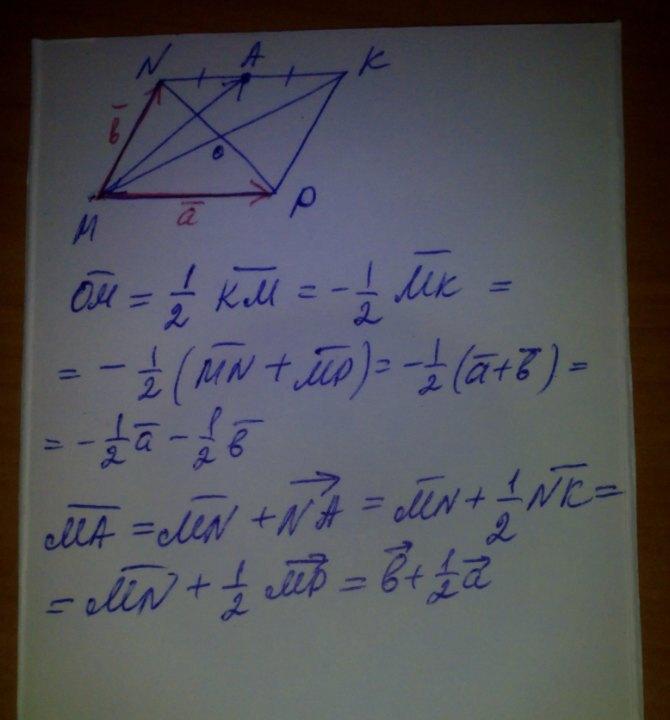 N A K
b̅
O
M a̅ P
O̅M̅ = 1/2 K̅M̅ = -1/2 M̅K̅ =
= -1/2 (M̅N̅ + M̅P̅) = -1/2 (a̅+b̅) =
= -1/2 a̅ - 1/2 b̅
M̅A̅ = M̅N̅ + N⃗A⃗ = M̅N̅ + 1/2 N̅K̅ =
= M̅N̅ + 1/2 M⃗P⃗ = b⃗ + 1/2 a⃗